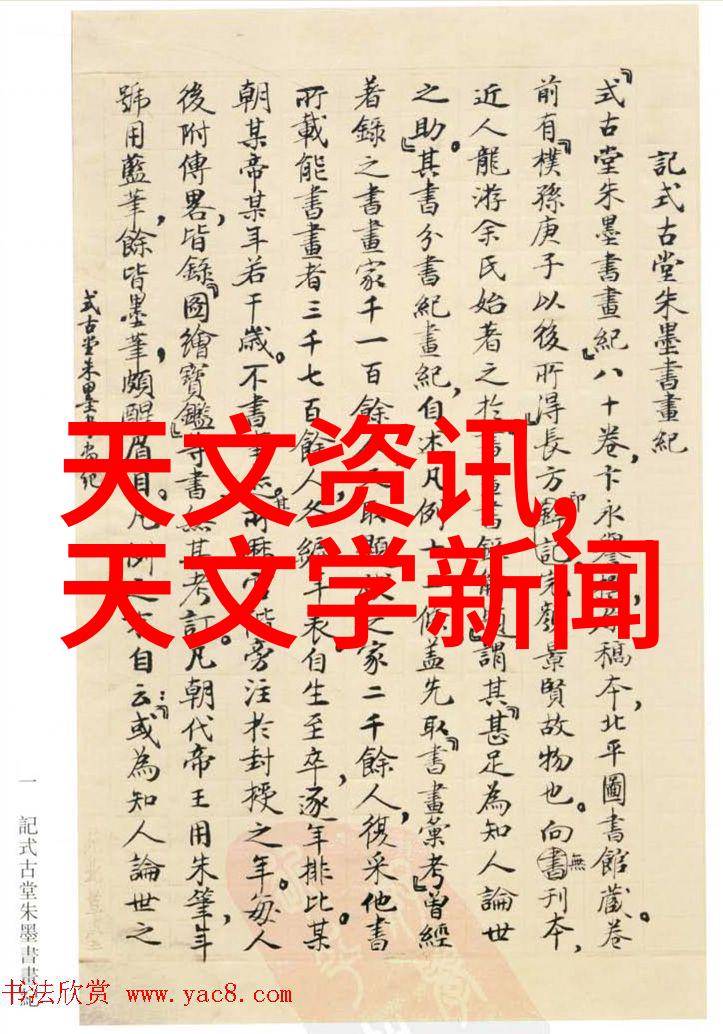 記式古堂朱墨書畫紀
『式古堂朱墨書畫紀』八十卷,卞永譽稿本,北平圖書館藏。卷
前有『樸孫庚子以後所得』長方印記,完顏景賢故物也。向無書刊本,
近人龍游余氏始著之於謂其『甚足為知人論世
之助。』其書分書紀畫紀,自述凡例十蓋先取『書畫彙考』曾經
著錄之書畫家千一百餘之家二千餘人,復采他書
所載能書畫者三千七百餘人,各編年表,自生至卒,逐年排比。某
朝某帝某年若干歲。不書其所歷官階旁注於封授之年。每人
後附傳畧,皆錄『圖繪寶鑑』等書,無其考訂。凡朝代帝王用朱筆,年
號用藍筆,餘皆墨筆,頗醒眉目。凡例自云:『或為知人論世之
式古堂朱墨書畫紀
一 記式古堂朱墨書畫紀
天文资讯,
天文学新闻
书法欣赏 www.yac8.com